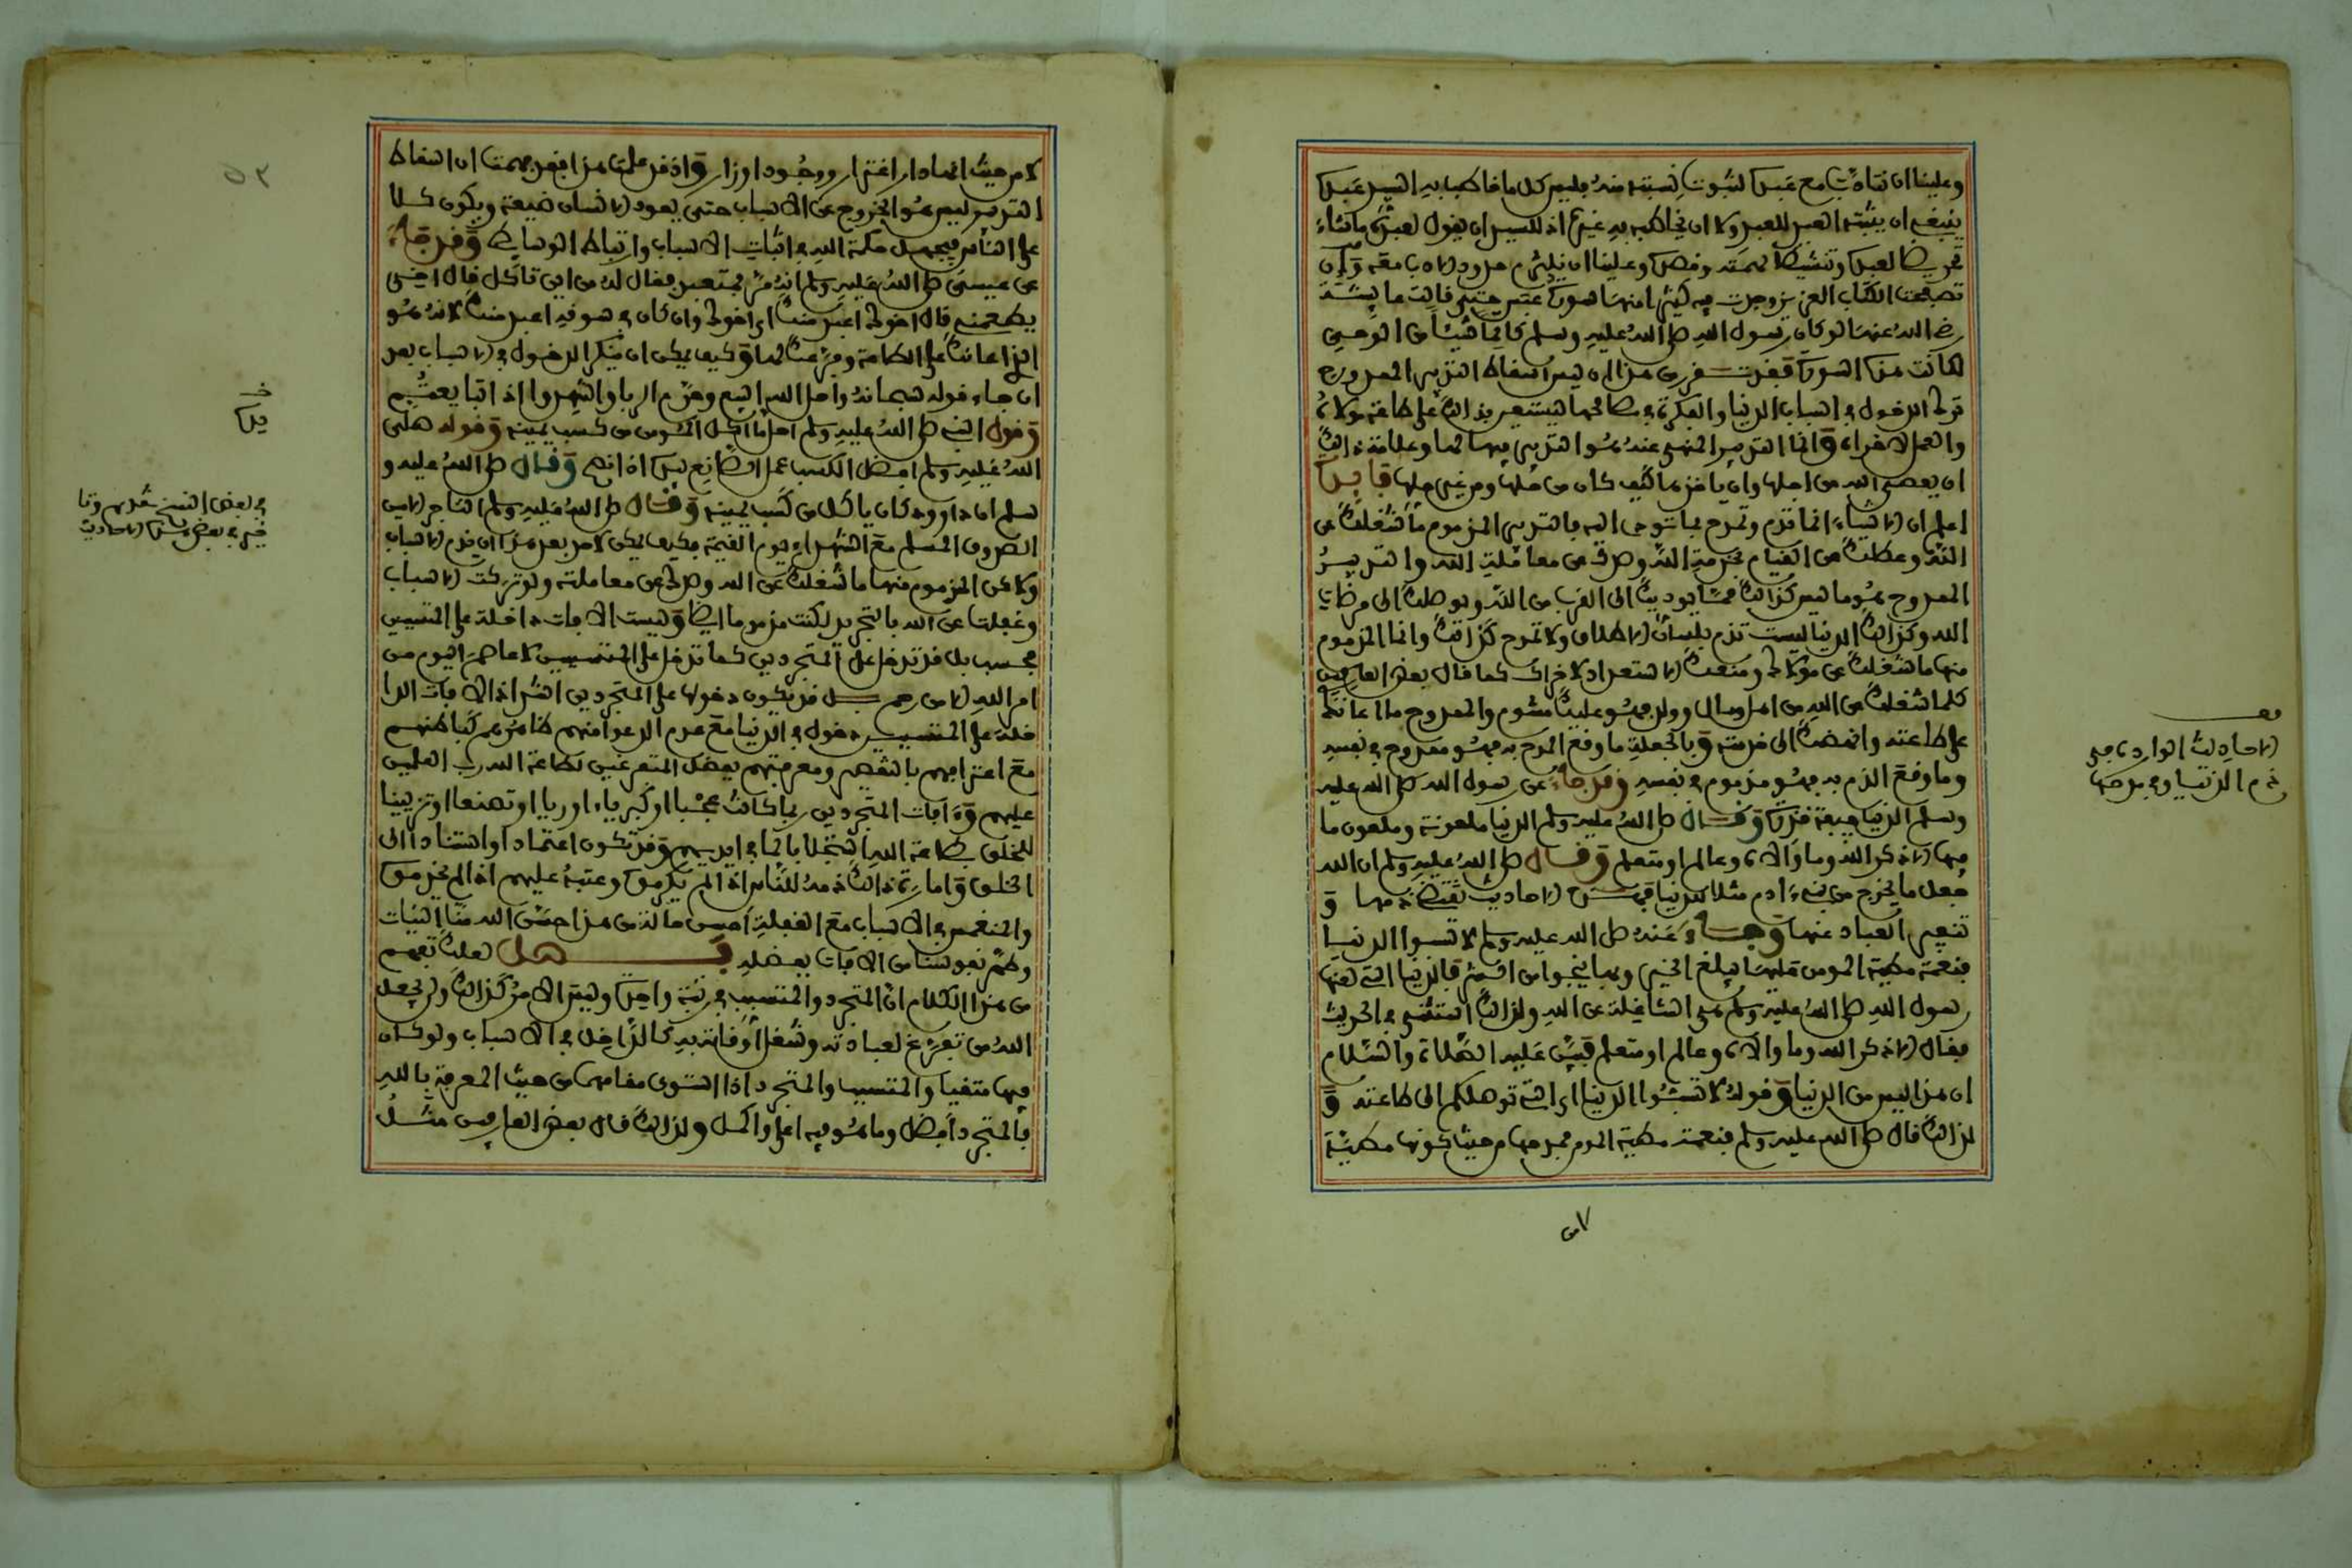 وعلينا ان نتادب مع عبده لثبوت نسبته منه فليس كل ما خاطب به السيد عبده
ينبغي ان ينسبه العبد للعبد ولا ان يخاطبه به غيره اذ للسيد ان يقول لعبده ما شاء
تحريضا لعبده وتنشيطا لهمته وقصده وعلينا ان نلتزم حدود الادب معه وان
تصفحت الكتاب العزيز وجدت فيه كثيرا منها سورة عبس حتى قالت عايشة
رضي الله عنها لو كان رسول الله صلى الله عليه وسلم كاتما شيئا من الوحي
لكتمت هذه السورة فقد تقرر من هذا ان ليس اسقاط التدبير الممدوح
ترك الدخول في اسباب الدنيا والفكرة في مصالحها ليستعين بذالك على طاعة مولاه
والعمل لاخراه وانما التدبير المنهي عنه هو التدبير فيها لها وعلامة ذالك
ان يعصي الله من اجلها وان ياخذها كيف كان من حلها ومن غير حلها فايدة
اعلم ان الاشياء انما تذم وتمدح بما تؤدي اليه فالتدبير المذموم ما شغلك عن
الله وعطلك عن القيام بخدمة الله وصدك عن معاملة الله والتدبير
الممدوح هو ما ليس كذالك مما يوديك الى القرب من الله ويوصلك الى مرضات
الله وكذالك الدنيا ليست تذم بلسان الاطلاق ولا تمدح كذالك وانما المذموم
منها ما شغلك عن مولاك ومنعك الاستعداد لاخراك كما قال بعض العارفين
كلما شغلك عن الله من اهل ومال وولد فهو عليك مشوم والممدوح ما اعانك
على طاعته وانهضك الى خدمته وبالجملة ما وقع المدح به فهو ممدوح في نفسه
وما وقع الذم به فهو مذموم في نفسه وقد جاء عن رسول الله صلى الله عليه
وسلم الدنيا جيفة قذرة وقال صلى الله عليه وسلم الدنيا ملعونة وملعون ما
فيها الا ذكر الله وما والاه وعالم او متعلم وقال صلى الله عليه وسلم ان الله
جعل ما يخرج من بني ءادم مثلا للدنيا فهذه الاحاديث تقتضي ذمها و
تنفير العباد عنها وجاء عنه صلى الله عليه وسلم لا تسبوا الدنيا
فنعمة مطية المومن عليها يبلغ الخير وبها ينجوا من الشر فالدنيا التي لعنها
رسول الله صلى الله عليه وسلم هي الشاغلة عن الله ولذالك استثنى في الحديث
فقال الا ذكر الله وما والاه وعالم او متعلم فبين عليه الصلاة والسلام
ان هذا ليس من الدنيا وقوله لا تسبوا الدنيا اي التي توصلكم الى طاعته و
لذالك قال صلى الله عليه وسلم فنعمت مطية المومن فمدحها من حيث كونها مطية
قف
الاحاديث الواردة في
ذم الدنيا وفي مدحها
لا من حيث انها دار اغترار ووجود اوزار واذ قد علمت هذا فقد فهمت ان اسقاط
التدبير ليس هو الخروج عن الاسباب حتى يعود الانسان ضيعة ويكون كلا
على الناس فيجهل حكمة الله في اثبات الاسباب وارتباط الوسايط وقد جاء
عن عيسى صلى الله عليه وسلم انه مر بمتعبد فقال له من اين تاكل قال اخي
يطعمني قال اخوك اعبد منك اي اخوك وان كان في سوقه اعبد منك لانه هو
الذي اعانك على الطاعة وفرغك لها وكيف يمكن ان ينكر الدخول في الاسباب بعد
ان جاء قوله سبحانه واحل الله البيع وحرم الربا واشهدوا اذا تبايعتم
وقول النبي صلى الله عليه وسلم احل ما اكل المومن من كسب يمينه وقوله صلى
الله عليه وسلم افضل الكسب عمل الصانع بيده اذا نصح وقال صلى الله عليه و
سلم ان داوود كان ياكل من كسب يمينه وقال صلى الله عليه وسلم التاجر الامين
الصدوق المسلم مع الشهداء يوم القيمة فكيف يمكن لاحد بعد هذا ان يذم الاسباب
ولاكن المذموم منها ما شغلك عن الله وصدك عن معاملته ولو تركت الاسباب
وغفلت عن الله بالتجريد لكنت مذموما ايضا وليست الافات داخلة على المتسببين
فحسب بل قد تدخل على المتجردين كما تدخل على المتسببين لا عاصم اليوم من
امر الله الا من رحم بل قد يكون دخولها على المتجردين اشد اذ الافات الدا
خلة على المتسببين دخول في الدنيا مع عدم الدعوا منهم ظاهرهم كباطنهم
مع اعترافهم بالتقصير ومعرفتهم بفضل المتفرغين لطاعة الله رب العلمين
عليهم وءافات المتجردين ربما كانت عجبا او كبرياء او ريا او تصنعا او تزيينا
للخلق بطاعة الله استجلابا لما في ايديهم وقد تكون اعتمادا او استنادا الى
الخلق وامارة ذالك ذمه للناس اذا لم يكرموه وعتبه عليهم اذا لم يخدموه
والمنغمس في الاسباب مع الغفلة احسن حالة من هذا حسن الله منا النيات
وطهر نفوسنا من الافات بفضله فصل لعلك تفهم
من هذا الكلام ان المتجرد والمتسبب في رتبة واحدة وليس الامر كذالك ولن يجعل
الله من تفرغ لعبادته وشغل اوقاته به كالداخل في الاسباب ولو كان
فيها متقيا والمتسبب والمتجرد اذا استوى مقامهما من حيث المعرفة بالله
فالمتجرد افضل وما هو فيه اعلى واكمل ولذالك قال بعض العارفين مثل
خ
يده
في بعض النسخ
٥٣